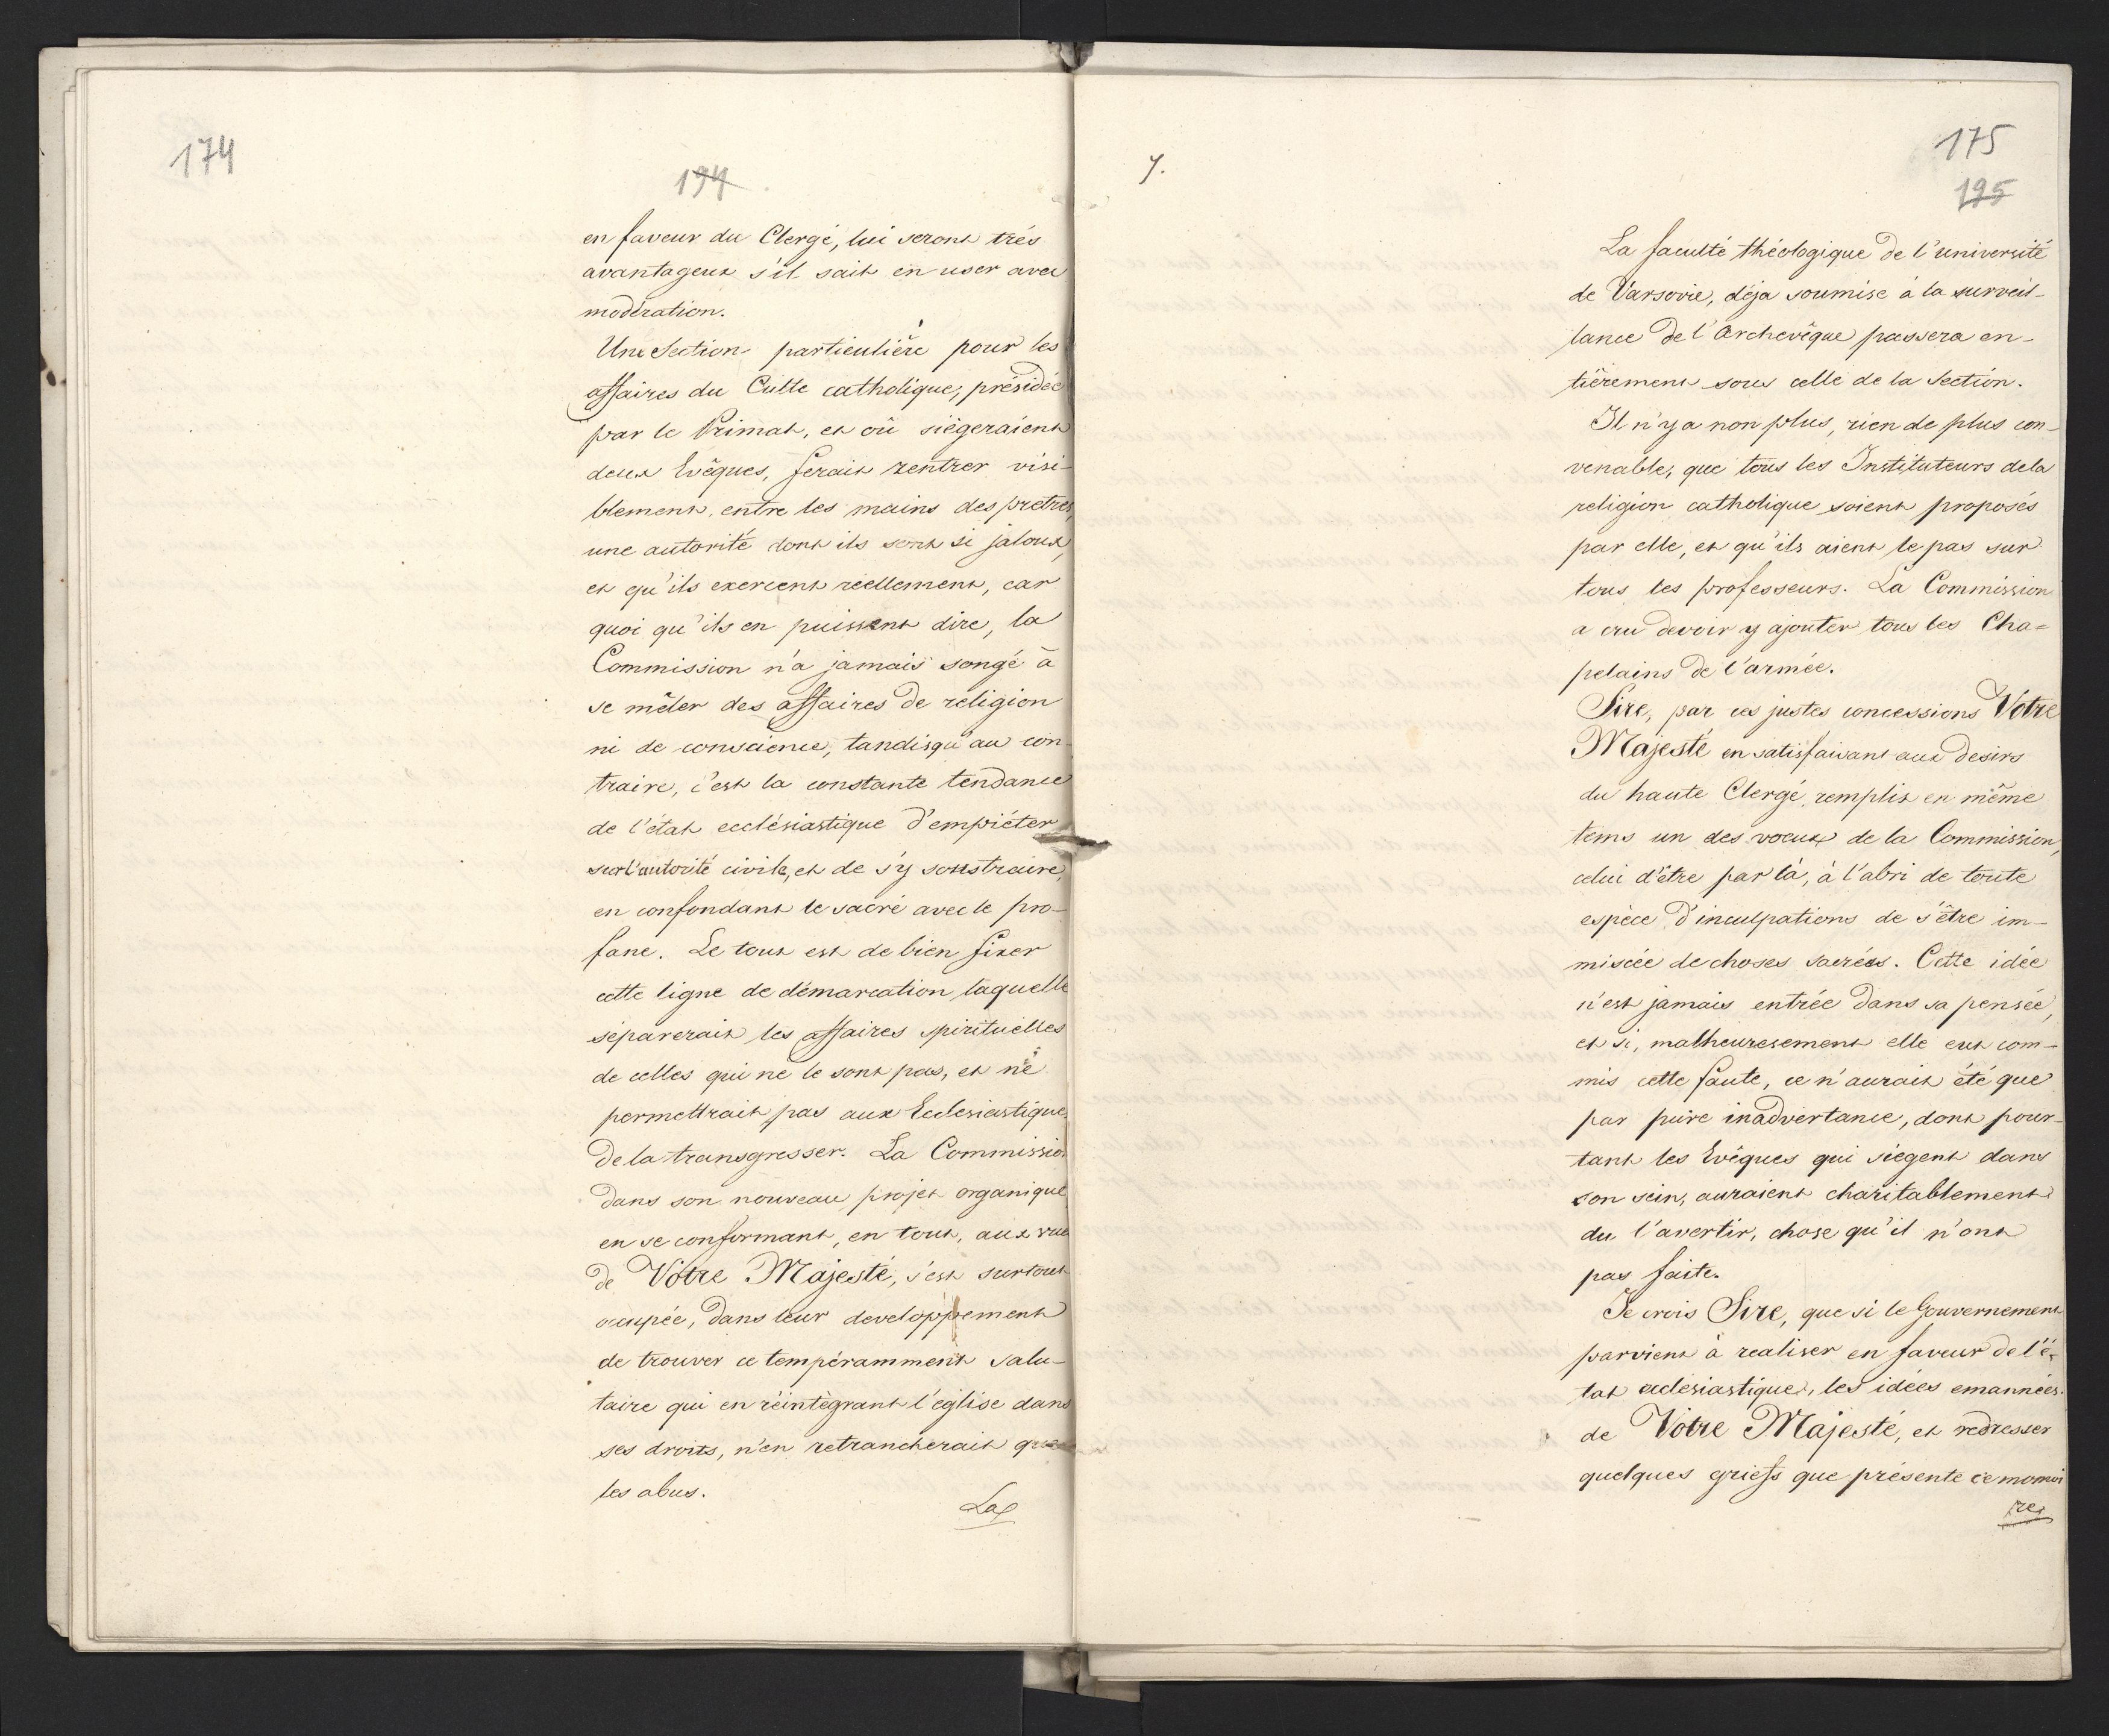 174
194
en faveur du Clergé, lui seront trés
avantageux s'il sait en user avec
modération.
Une Section particulière pour les
affaires du Culte catholique, présidée
par le Primat, et où siègeraient
deux Evêques, ferait rentrer visi-
blement, entre les mains des prêtres,
une autorité dont ils sont si jaloux,
et qu'ils exercent réellement, car
quoi qu'ils en puissent dire, la
Commission n'a jamais songé à
se mêler des affaires de religion
ni de conscience, tandisqu'au con-
traire, c'est la constante tendance
de l'état ecclésiastique d'empiéter
sur l'autorité civile, et de s'y soustraire,
en confondant le sacré avec le pro-
fane. Le tout est de bien fixer
cette ligne de démarcation laquelle
séparerait les affaires spirituelles
de celles qui ne le sont pas, et ne
permettrait pas aux Ecclesiastiques
de la transgresser. La Commission
dans son nouveau projet organique
en se conformant, en tout, aux vues
de Votre Majesté, s'est surtout
occupée, dans leur developpement
de trouver ce tempéramment salu-
taire qui en réintègrant l'église dans
ses droits, n'en retrancherait que
les abus.
La
7.
175
195
La faculté théologique de l'université
de Varsovie, déja soumise à la surveil-
lance de l'Archevêque passera en-
tièrement sous celle de la Section.
Il n'y a non plus, rien de plus con-
venable, que tous les Instituteurs de la
religion catholique soient proposés
par elle, et qu'ils aient le pas sur
tous les professeurs. La Commission
a cru devoir y ajouter tous les Cha=
pelains de l'armée.
Sire, par ces justes concessions Votre
Majesté en satisfaisant aux desirs
du haute Clergé, remplit en même
tems un des voeux de la Commission,
celui d'être par là, à l'abri de toute
espèce d'inculpations de s'être im-
miscée de choses sacrées. Cette idée
n'est jamais entrée dans sa pensée,
et si, malheuresement elle eut com-
mis cette faute, ce n'aurait été que
par pure inadvertance, dont pour-
tant les Evêques qui siegent dans
son sein, auraient charitablement
du l'avertir, chose qu'il n'ont
pas faite.
Je crois Sire, que si le Gouvernement
parvient à realiser en faveur de l'é-
tat eclesiastique, les idées emannées
de Votre Majesté, et redresser
quelques griefs que présente ce memoi
re,